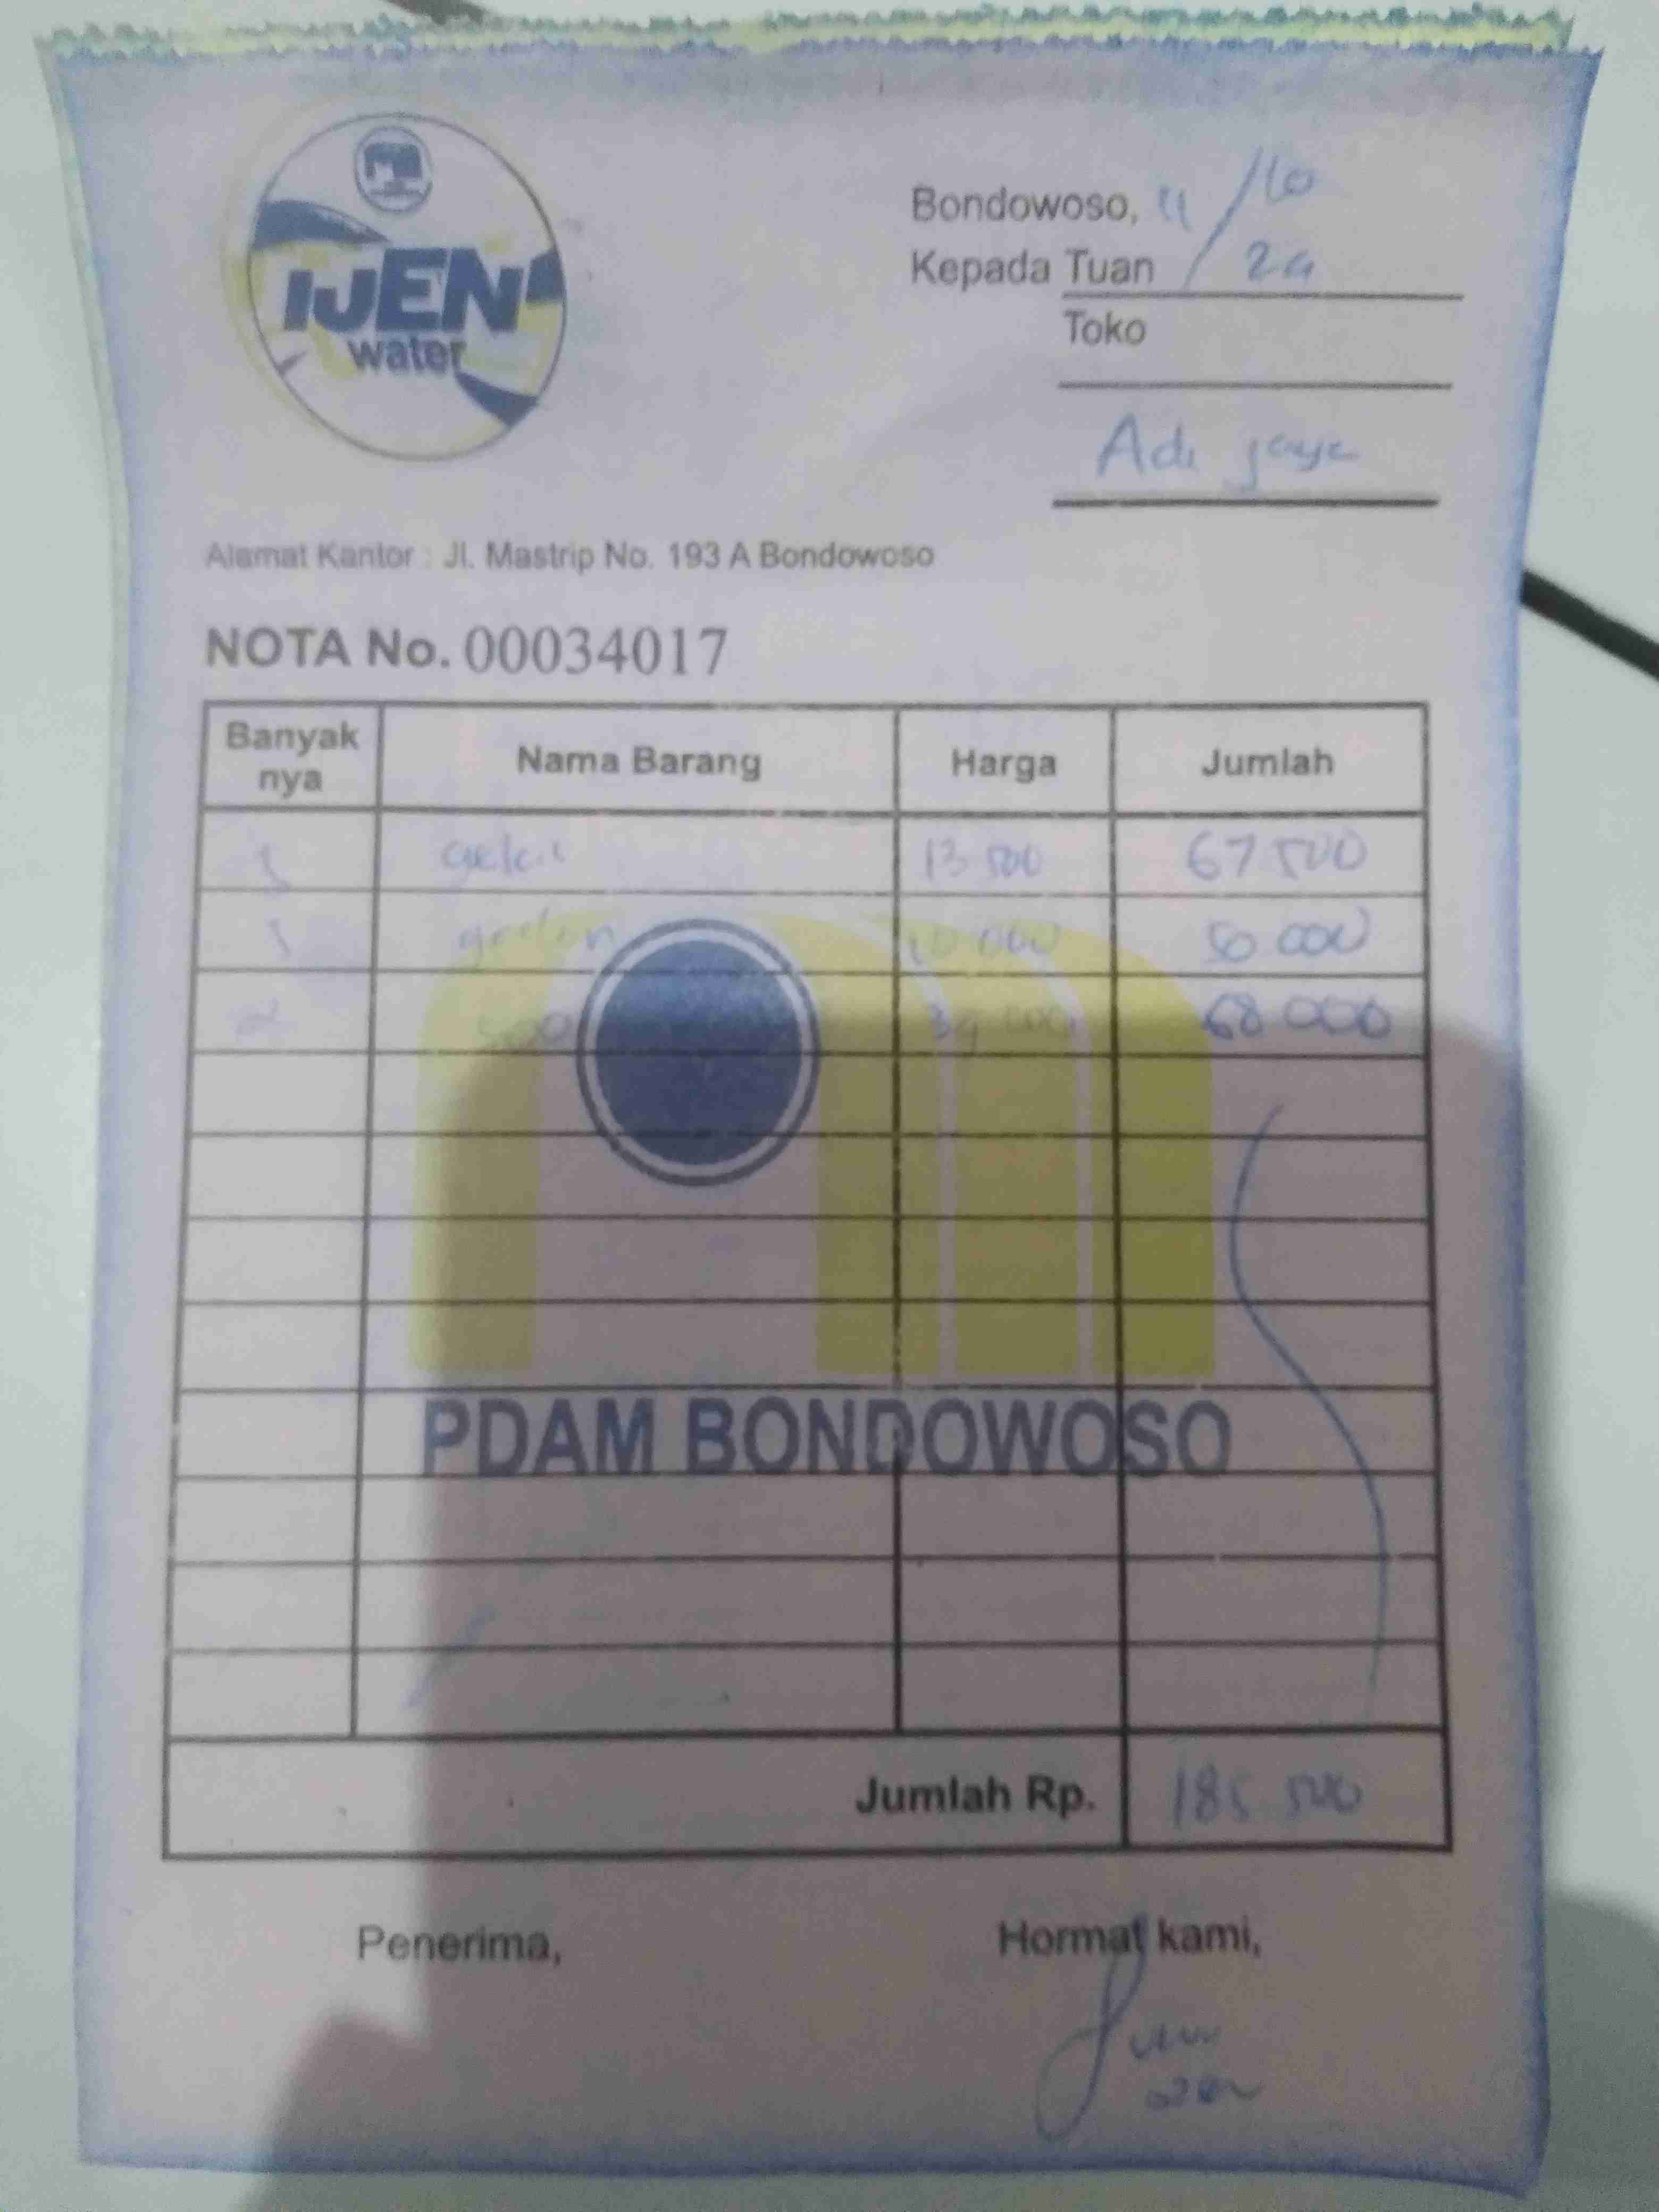 IJEN
water
Bondowoso, 11/10
Kepada Tuan / 24
Toko
Adi jaya
Alamat Kantor : Jl. Mastrip No. 193 A Bondowoso
NOTA No. 00034017
Banyak nya Nama Barang Harga Jumlah
5 13 500 67 500
5 galon 10 000 50 000
2 500 34 000 68 000
PDAM BONDOWOSO
Jumlah Rp. 185 500
Penerima, Hormat kami,